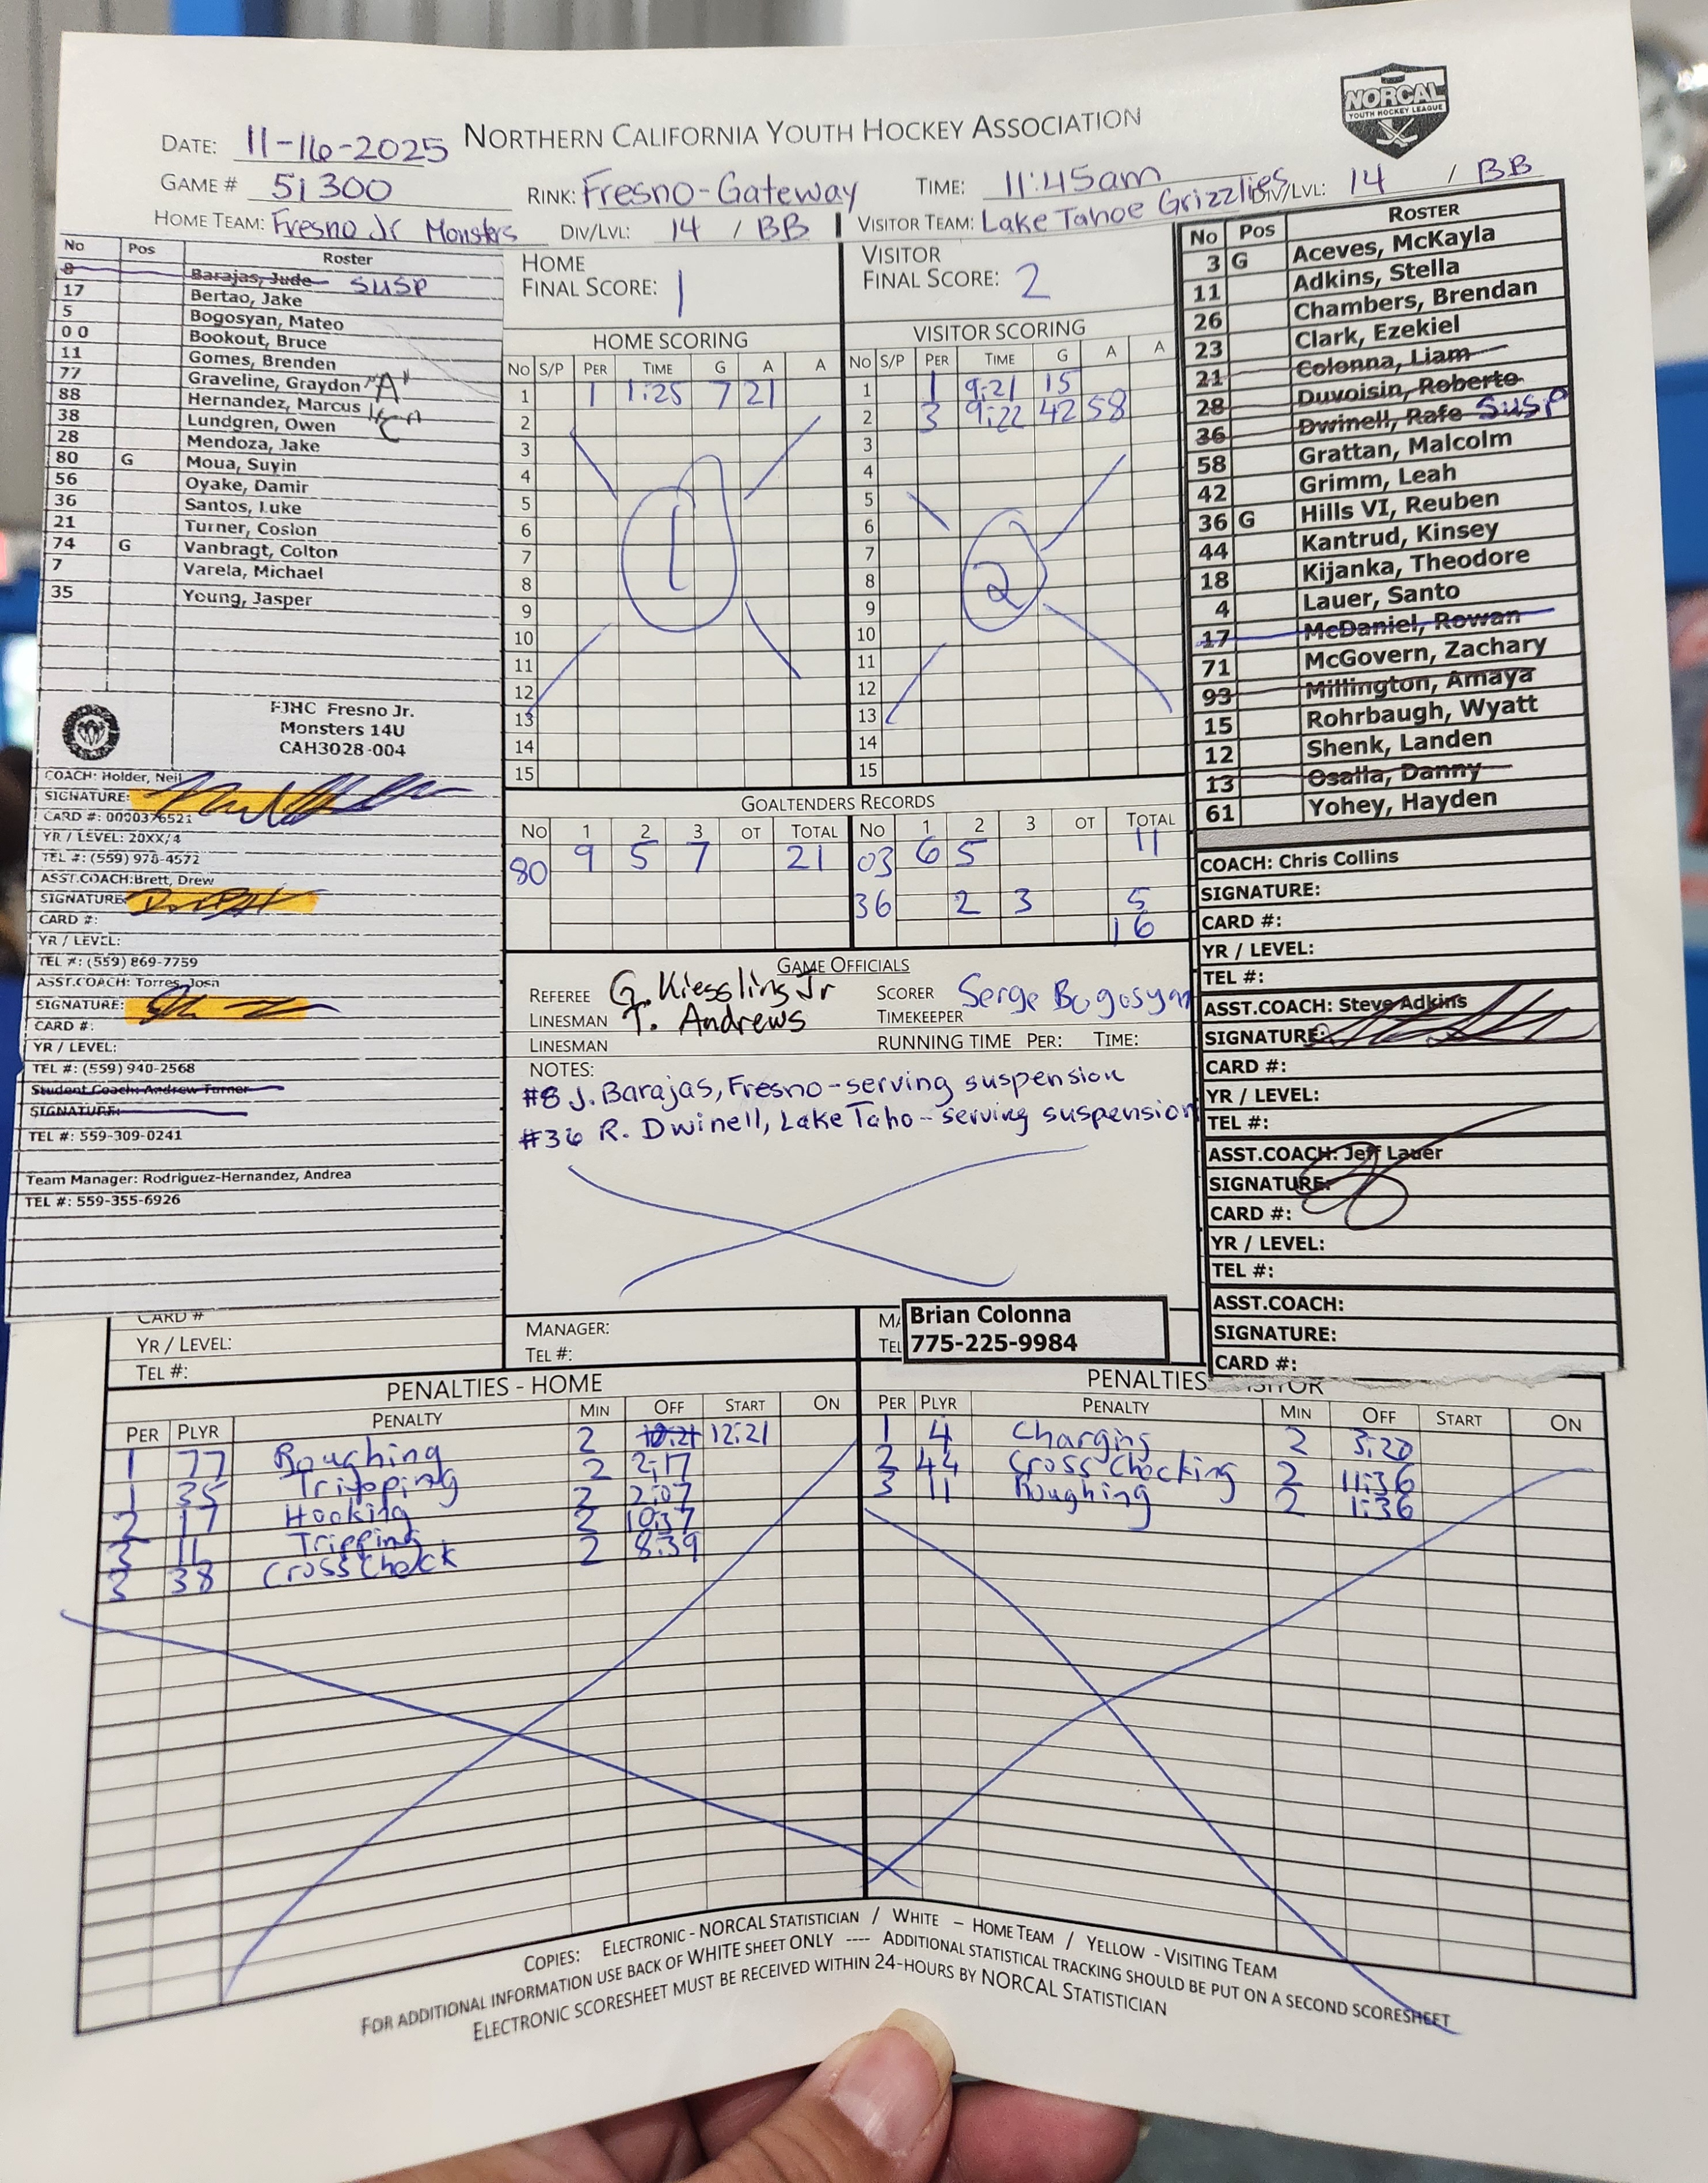 NORCAL
YOUTH HOCKEY LEAGUE
NORTHERN CALIFORNIA YOUTH HOCKEY ASSOCIATION
DATE: 11-16-2025
GAME # 51300 RINK: Fresno-Gateway TIME: 11:45am
HOME TEAM: Fresno Jr Monsters DIV/LVL: 14 / BB VISITOR TEAM: Lake Tahoe Grizzlies DIV/LVL: 14 / BB
No Pos Roster
8 Barajas, Jude SUSP
17 Bertao, Jake
5 Bogosyan, Mateo
00 Bookout, Bruce
11 Gomes, Brenden
77 Graveline, Graydon "A"
88 Hernandez, Marcus
38 Lundgren, Owen "C"
28 Mendoza, Jake
80 G Moua, Suyin
56 Oyake, Damir
36 Santos, Luke
21 Turner, Cosion
74 G Vanbragt, Colton
7 Varela, Michael
35 Young, Jasper
FJHC Fresno Jr.
Monsters 14U
CAH3028-004
COACH: Holder, Neil
SIGNATURE:
CARD #: 000037652
YR / LEVEL: 20XX/4
TEL #: (559) 978-4572
ASST.COACH:Brett, Drew
SIGNATURE:
CARD #:
YR / LEVEL:
TEL #: (559) 869-7759
ASST.COACH: Torres, Josh
SIGNATURE:
CARD #:
YR / LEVEL:
TEL #: (559) 940-2568
Student Coach: Andrew Turner
SIGNATURE:
TEL #: 559-309-0241
Team Manager: Rodriguez-Hernandez, Andrea
TEL #: 559-355-6926
CARD #
YR / LEVEL:
TEL #:
HOME
FINAL SCORE: 1
VISITOR
FINAL SCORE: 2
HOME SCORING
NO S/P PER TIME G A A
1 1 1:25 7 21
2
3
4
5
6
7
8
9
10
11
12
13
14
15
1
VISITOR SCORING
NO S/P PER TIME G A A
1 1 9:21 15
2 3 9:22 42 58
3
4
5
6
7
8
9
10
11
12
13
14
15
2
GOALTENDERS RECORDS
NO 1 2 3 OT TOTAL NO 1 2 3 OT TOTAL
80 9 5 7 21 03 6 5 11
36 2 3 5
16
GAME OFFICIALS
REFEREE G. Kiessling Jr SCORER Serge Bogosyan
LINESMAN T. Andrews TIMEKEEPER
LINESMAN RUNNING TIME PER: TIME:
NOTES:
#8 J. Barajas, Fresno-serving suspension
#36 R. Dwinell, Lake Taho-serving suspension
MANAGER:
TEL #:
Brian Colonna
TEL 775-225-9984
No Pos ROSTER
3 G Aceves, McKayla
11 Adkins, Stella
26 Chambers, Brendan
23 Clark, Ezekiel
21 Colonna, Liam
28 Duvoisin, Roberto
36 Dwinell, Rafe SUSP
58 Grattan, Malcolm
42 Grimm, Leah
36 G Hills VI, Reuben
44 Kantrud, Kinsey
18 Kijanka, Theodore
4 Lauer, Santo
17 McDaniel, Rowan
71 McGovern, Zachary
93 Millington, Amaya
15 Rohrbaugh, Wyatt
12 Shenk, Landen
13 Osalla, Danny
61 Yohey, Hayden
COACH: Chris Collins
SIGNATURE:
CARD #:
YR / LEVEL:
TEL #:
ASST.COACH: Steve Adkins
SIGNATURE:
CARD #:
YR / LEVEL:
TEL #:
ASST.COACH: Jeff Lauer
SIGNATURE:
CARD #:
YR / LEVEL:
TEL #:
ASST.COACH:
SIGNATURE:
CARD #:
PENALTIES - HOME
PER PLYR PENALTY MIN OFF START ON
1 77 Roughing 2 10:21 12:21
1 35 Tripping 2 2:17
2 17 Hooking 2 2:07
3 11 Tripping 2 10:37
3 38 Cross Check 2 8:39
PENALTIES VISITOR
PER PLYR PENALTY MIN OFF START ON
1 4 Charging 2 3:20
2 44 Cross Checking 2 11:36
3 11 Roughing 2 1:36
COPIES: ELECTRONIC - NORCAL STATISTICIAN / WHITE – HOME TEAM / YELLOW - VISITING TEAM
FOR ADDITIONAL INFORMATION USE BACK OF WHITE SHEET ONLY ---- ADDITIONAL STATISTICAL TRACKING SHOULD BE PUT ON A SECOND SCORESHEET
ELECTRONIC SCORESHEET MUST BE RECEIVED WITHIN 24-HOURS BY NORCAL STATISTICIAN